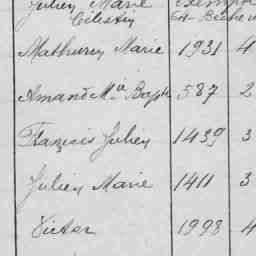 Julien Marie
Célestin
Mathurin Marie 1931 4
Amand Mie Bapte 587 2
François Julien 1439 3
Julien Marie 1411 3
Victor 1998 4